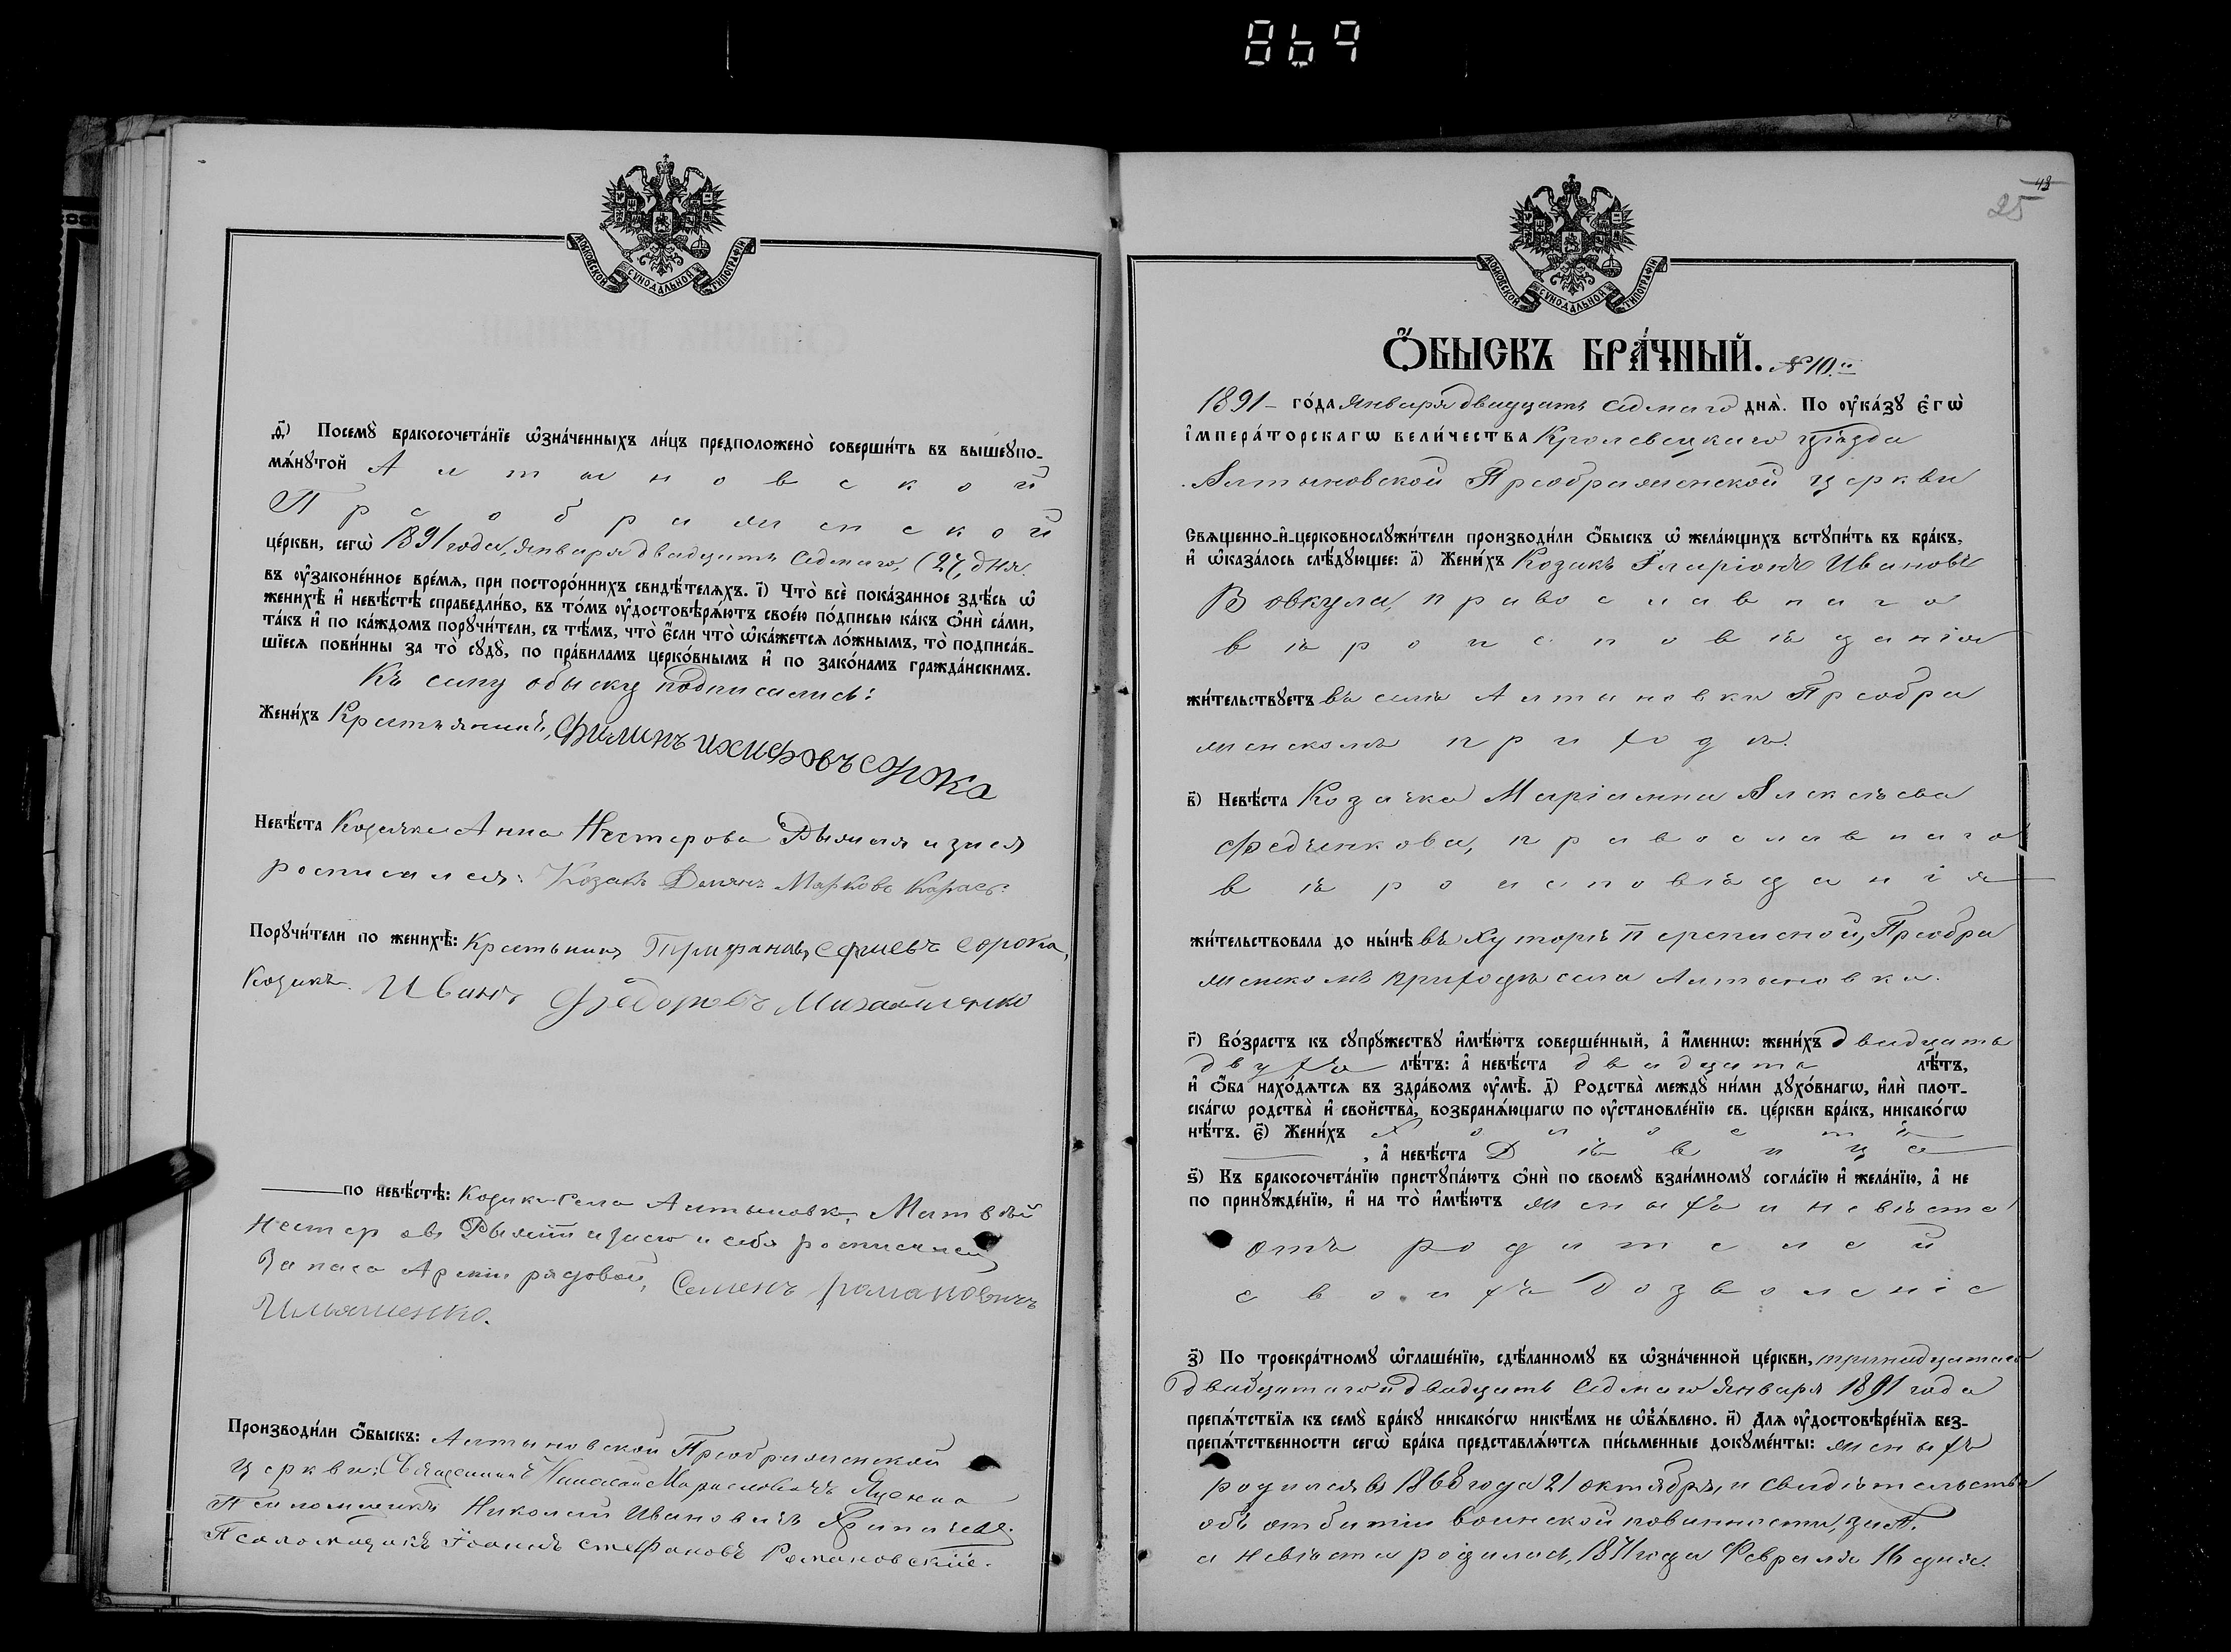 869
МОСКОВСКОЙ СУНОДАЛЬНОЙ ТИПОГРАФІИ
д҃і) Посемꙋ̀ бракосочета́нїе ѡ҆зна́ченныхъ ли́цъ предположено̀ соверши́ть въ вышеꙋпо-
мѧ́нꙋтой Алтыновской
Преображенской
це́ркви, сегѡ̀ 1891 года, Января двадцать седмаго, (27) дня.
въ ᲂу҆законе́нное вре́мѧ, при посторо́ннихъ свидѣ́телѧхъ. і҃) Что̀ всѐ пока́занное здѣ́сь ѡ҆
женихѣ̀ и҆ невѣ́стѣ справедли́во, въ то́мъ ᲂу҆достовѣрѧ́ютъ свое́ю по́дписью ка́къ ѻ҆нѝ са́ми,
та́къ и҆ по ка́ждомъ порꙋчи́тели, съ тѣ́мъ, что̀ є҆́сли что̀ ѡ҆ка́жетсѧ ло́жнымъ, то̀ подписа́в-
шїесѧ пови́нны за то̀ сꙋдꙋ̀, по пра́виламъ церко́внымъ и҆ по зако́намъ гражда́нскимъ.
Къ сему обыску подписались:
Жени́хъ Крестьянинъ, Филипъ сорока
Невѣ́ста Козачка Анна Нестерова а за ея
росписался: Козакъ Демянъ Марковъ Карась:
Порꙋчи́тели по женихѣ̀: Крестьянинъ сорока,
Козакъ. Иванъ Федоровъ Михайленко
по невѣ́стѣ: Козакъ села Алтыновки, Матвѣй
Нестеровъ и себя росписался
Запаса Арміи рядовой, Семенъ романовичъ
Ильяшенко.
Производи́ли ѻ҆́быскъ: Алтыновской Преображенской
церкви: Священникъ Яценко
Псаломщикъ Николай Ивановичъ
Псаломщикъ Іоаннъ стефановъ Романовскій.
43
25
МОСКОВСКОЙ СУНОДАЛЬНОЙ ТИПОГРАФІИ
Ѻ҆́БЫСКЪ БРА́ЧНЫЙ. №10.й
1891 – го́да Января двадцать седмаго днѧ̀. По ᲂу҆ка́зꙋ є҆гѡ̀
і҆мпера́торскагѡ вели́чества Кролевецкаго уѣзда
Алтыновской Преображенской церкви
Свѧщенно-и҆-церковнослꙋжи́тели производи́ли ѻ҆́быскъ ѡ҆ жела́ющихъ встꙋпи́ть въ бра́къ,
и҆ ѡ҆каза́лось слѣ́дꙋющее: а҃) Жени́хъ Козакъ Иларіонъ Ивановъ
Вовкула, православнаго
вѣроисповѣданія
жи́тельствꙋетъ въ селѣ Алтыновки Преобра
женскомъ приходѣ.
в҃) Невѣ́ста Козачка Маріанна Алексѣева
Федченкова, православнаго
вѣроисповѣданія
жи́тельствовала до ны́нѣ въ Хуторѣ Переписной, Преобра
женскомъ приходѣ села Алтыновки.
г҃) Во́зрастъ къ сꙋпрꙋ́жествꙋ и҆мѣ́ютъ соверше́нный, а҆ и҆́меннѡ: жени́хъ двадцать
двухъ лѣ́тъ: а҆ невѣ́ста двадцать лѣ́тъ,
и҆ ѻ҆́ба нахо́дѧтсѧ въ здра́вомъ ᲂу҆мѣ̀. д҃) Родства̀ междꙋ̀ ни́ми дꙋхо́внагѡ, и҆лѝ плот-
ска́гѡ родства̀ и҆ свойства̀, возбранѧ́ющагѡ по ᲂу҆становле́нїю св. це́ркви бра́къ, никако́гѡ
нѣ́тъ. є҃) Жени́хъ Холостъ
, а҆ невѣ́ста Дѣвица
ѕ҃) Къ бракосочета́нїю пристꙋпа́ютъ ѻ҆нѝ по своемꙋ̀ взаи́мномꙋ согла́сїю и҆ жела́нїю, а҆ не
по принꙋжде́нїю, и҆ на то̀ и҆мѣ́ютъ женихъ и невѣста
отъ родителей
своихъ дозволеніе
з҃) По троекра́тномꙋ ѡ҆глаше́нїю, сдѣ́ланномꙋ въ ѡ҆зна́ченной це́ркви, тринадцатаго
двадцатаго и двадцать седмаго Января 1891 года
препѧ́тствїѧ къ семꙋ̀ бра́кꙋ никако́гѡ никѣ́мъ не ѡ҆б̾ѧ́влено. и҃) Для ᲂу҆достовѣре́нїѧ без-
препѧ́тственности сегѡ̀ бра́ка представлѧ́ютсѧ пи́сьменные докꙋме́нты: женихъ
родился въ 1868 года 21 октября, и свидѣтельства
объ отбытіи воинской повинности, за №.
а невѣста родилась, 1871 года Февраля 16 дня.